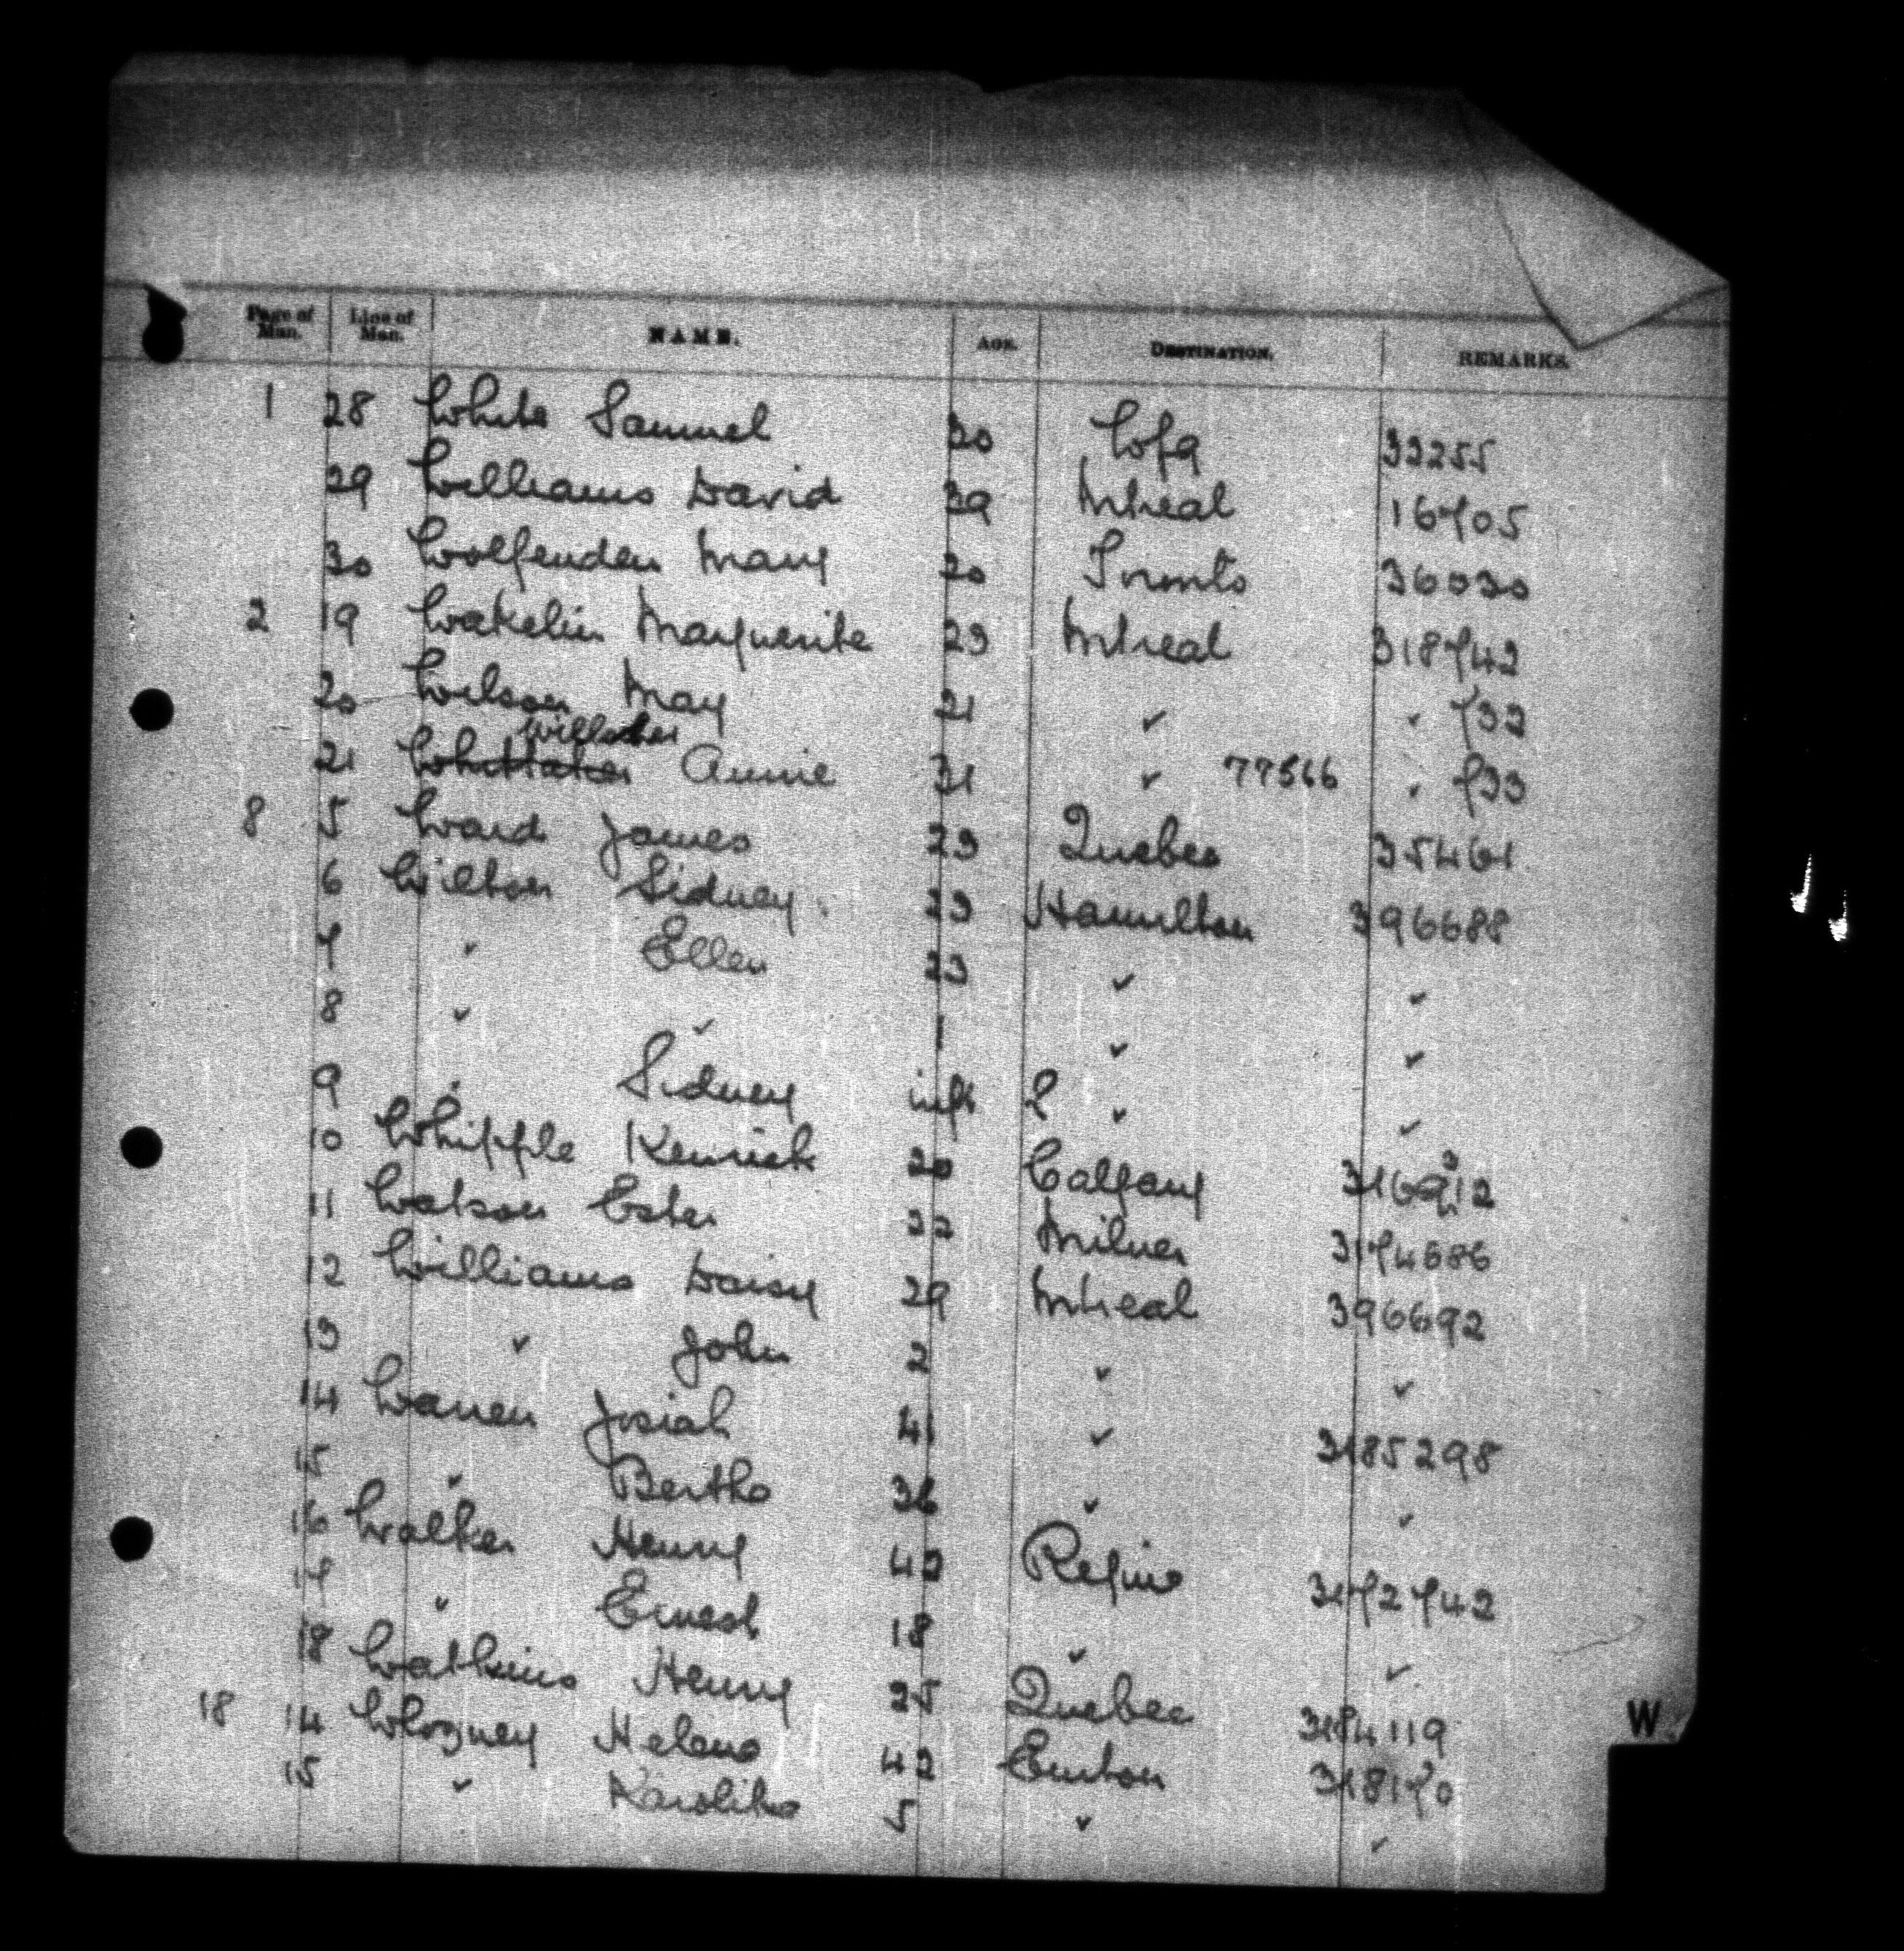 Page of Man. Line of Man. NAME. AGE. DESTINATION. REMARKS.
1 28 White Samuel 30 Wpg 33255
29 Williams David 39 Mtreal 16705
30 Wolfenden Mary 20 Toronto 36030
2 19 Wakelin Marguerite 23 Mtreal 318742
20 Wilson May 21 " " 732
Willicher
21 Whittaker Annie 31 " 77566 " 733
8 5 Ward James 23 Quebec 35461
6 Wilton Sidney 23 Hamilton 396688
7 " Ellen 23 " "
8 " " 1 " "
9 " Sidney inft " "
10 Whipple Kenrick 20 Calgary
11 Watson Ester 22 Milner 3174686
12 Williams Daisy 29 Mtreal 396692
13 " John 2 " "
14 Warren Josiah 41 " 3185298
15 " Bertha 36 " "
16 Walker Henry 42 Regina 3172742
17 " Ernest 18 " "
18 Watkins Henry 25 Quebec 3184119
18 14 Whogney Helena 42 Emton 318170
15 " Karolika 5 " "
W